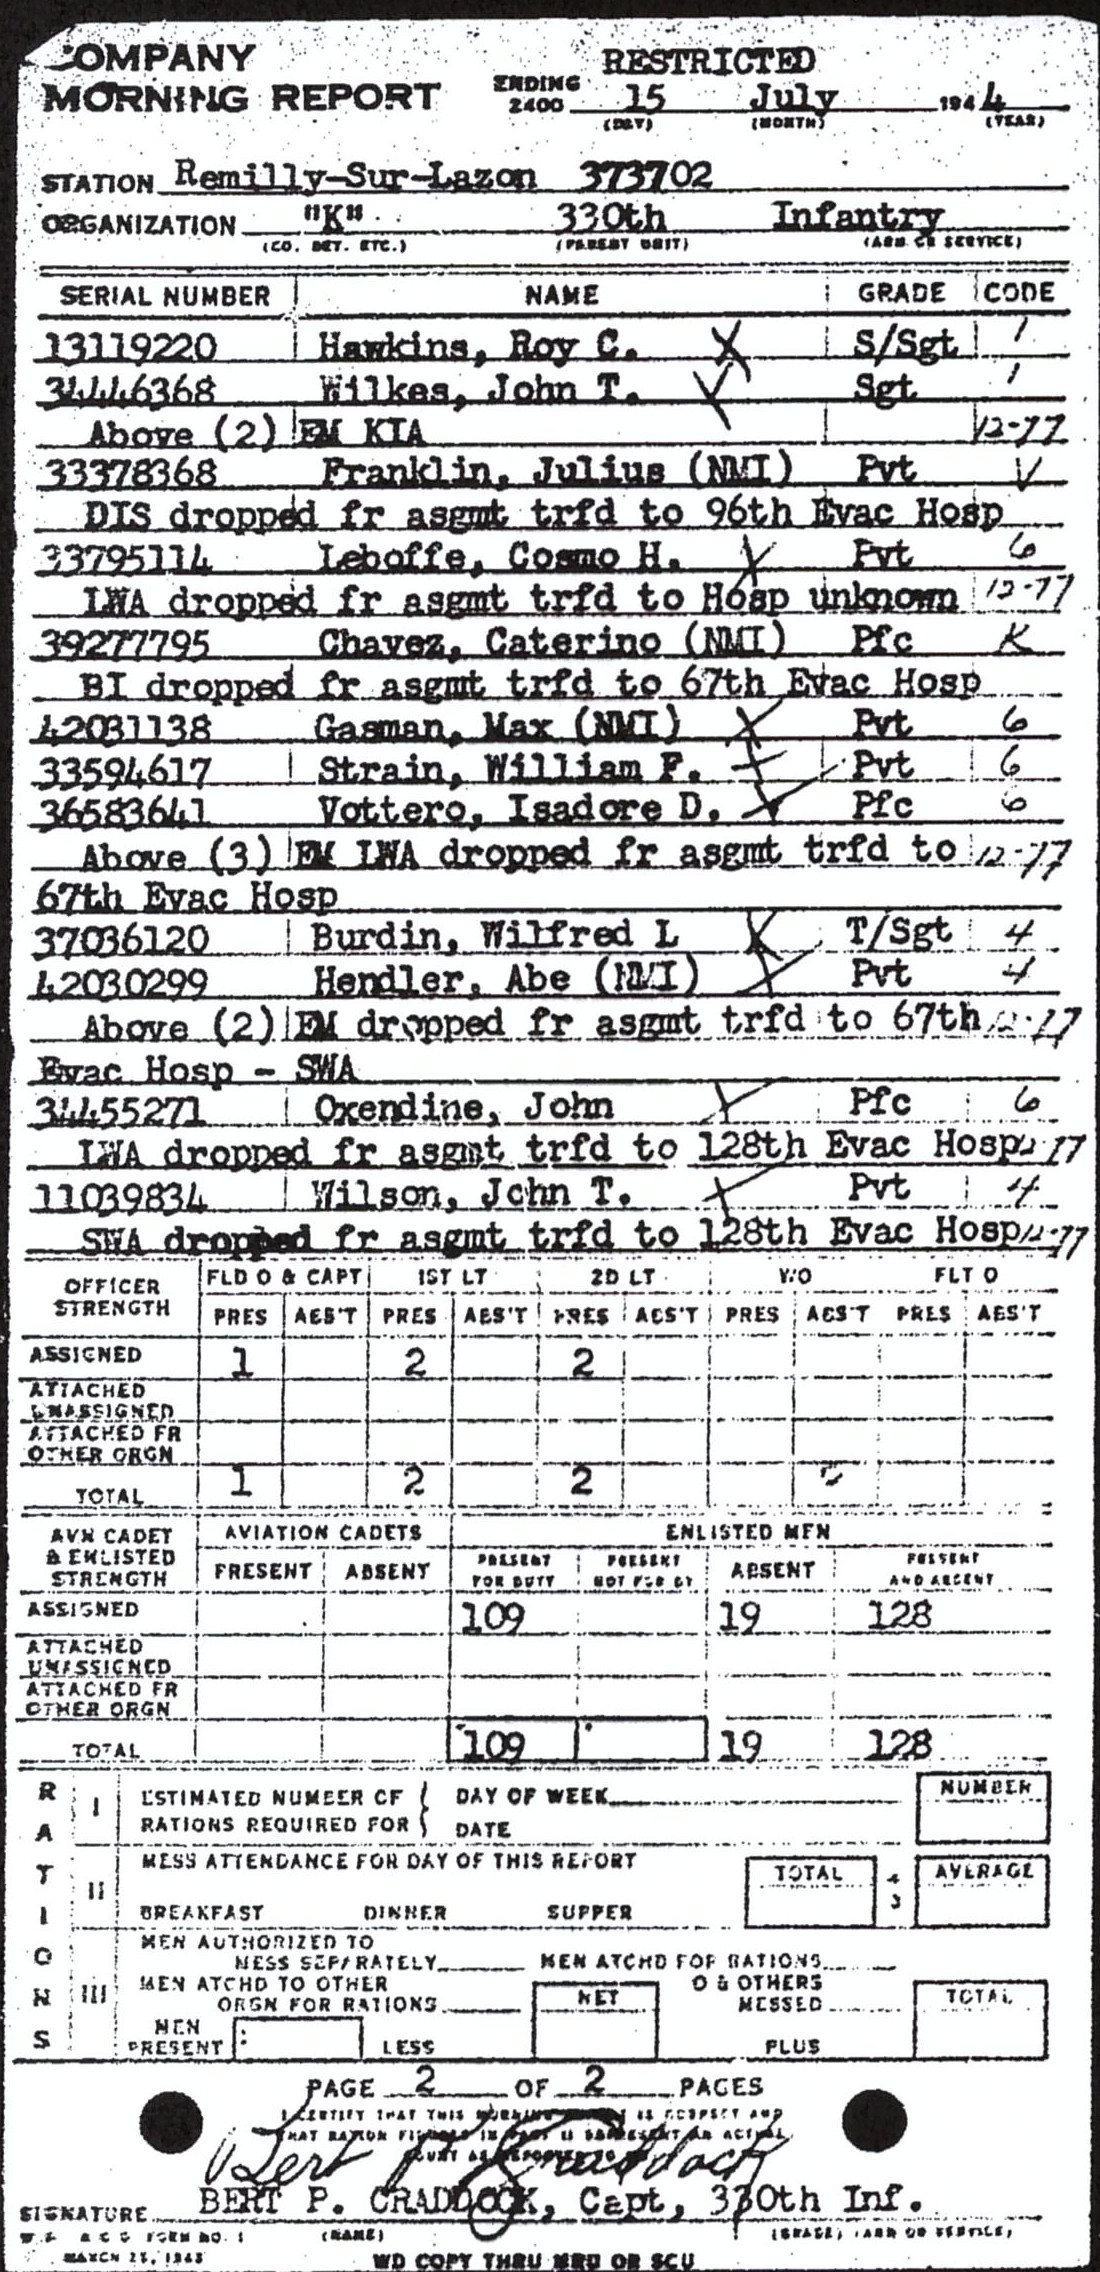 COMPANY
RESTRICTED
MORNING REPORT ENDING 2400 15 July 1944
(DAY) (MONTH) (YEAR)
STATION Remilly-Sur-Lazon 373702
ORGANIZATION "K" 330th Infantry
(CO. DET. ETC.) (PARENT UNIT) (ARM OR SERVICE)
SERIAL NUMBER NAME GRADE CODE
13119220 Hawkins, Roy C. X S/Sgt 1
34446368 Wilkes, John T. Sgt 1
Above (2) EM KIA 12-77
33378368 Franklin, Julius (NMI) Pvt V
DIS dropped fr asgmt trfd to 96th Evac Hosp
33795114 Leboffe, Cosmo H. Pvt 6
LWA dropped fr asgmt trfd to Hosp unknown 12-77
39277795 Chavez, Caterino (NMI) Pfc K
BI dropped fr asgmt trfd to 67th Evac Hosp
42031138 Gasman, Max (NMI) X Pvt 6
33594617 Strain, William F. Pvt 6
36583641 Vottero, Isadore D. Pfc 6
Above (3) EM LWA dropped fr asgmt trfd to 12-77
67th Evac Hosp
37036120 Burdin, Wilfred L X T/Sgt 4
42030299 Hendler, Abe (NMI) X Pvt 4
Above (2) EM dropped fr asgmt trfd to 67th 12-17
Evac Hosp - SWA
34455271 Oxendine, John Pfc 6
LWA dropped fr asgmt trfd to 128th Evac Hosp
11039834 Wilson, John T. Pvt 4
SWA dropped fr asgmt trfd to 128th Evac Hosp 12-77
OFFICER STRENGTH FLD O & CAPT 1ST LT 2D LT W/O FLT O
PRES ABS'T PRES ABS'T PRES ABS'T PRES ABS'T PRES ABS'T
ASSIGNED 1 2 2
ATTACHED UNASSIGNED
ATTACHED FR OTHER ORGN
TOTAL 1 2 2
AVN CADET & ENLISTED STRENGTH AVIATION CADETS ENLISTED MEN
PRESENT ABSENT PRESENT FOR DUTY PRESENT NOT FOR DY ABSENT PRESENT AND ABSENT
ASSIGNED 109 19 128
ATTACHED UNASSIGNED
ATTACHED FR OTHER ORGN
TOTAL 109 19 128
RATIONS
I ESTIMATED NUMBER OF RATIONS REQUIRED FOR DAY OF WEEK NUMBER
DATE
II MESS ATTENDANCE FOR DAY OF THIS REPORT TOTAL AVERAGE
BREAKFAST DINNER SUPPER 3
III MEN AUTHORIZED TO MESS SEPARATELY MEN ATCHD FOR RATIONS
MEN ATCHD TO OTHER ORGN FOR RATIONS NET O & OTHERS MESSED TOTAL
MEN PRESENT LESS PLUS
PAGE 2 OF 2 PAGES
I CERTIFY THAT THIS MORNING REPORT IS CORRECT AND
THAT RATION FIGURES IN PART II REPRESENT AN ACTUAL
COUNT AS REPORTED TO
Bert P Craddock
SIGNATURE BERT P. CRADDOCK, Capt, 330th Inf.
(NAME) (GRADE) (ARM OR SERVICE)
W. D. A G O FORM NO. 1
MARCH 25, 1943
WD COPY THRU MRU OR SCU